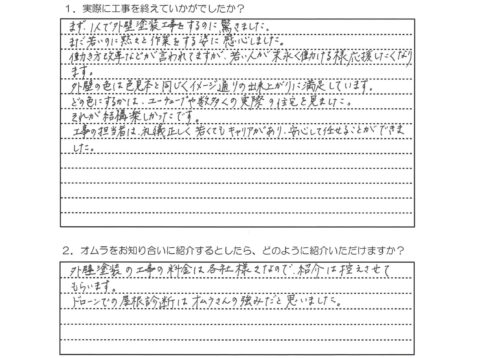 1．実際に工事を終えていかがでしたか？
まず、1人で外壁塗装工事をするのに驚きました。
まだ若いのに黙々と作業をする姿に感心しました。
働き方改革などが言われてますが、若い人が末永く働ける様応援したくなり
ます。
外壁の色は色見本と同じくイメージ通りの出来上がりに満足しています。
どの色にするかは、ユーチューブや数多くの実際の住宅を見ました。
それが結構楽しかったです。
工事の担当者は、礼儀正しく若くてもキャリアがあり、安心して任せることができま
した。
2．オムラをお知り合いに紹介するとしたら、どのように紹介いただけますか？
外壁塗装の工事の料金は各社様々なので、紹介は控えさせて
もらいます。
ドローンでの屋根診断はオムラさんの強みだと思いました。